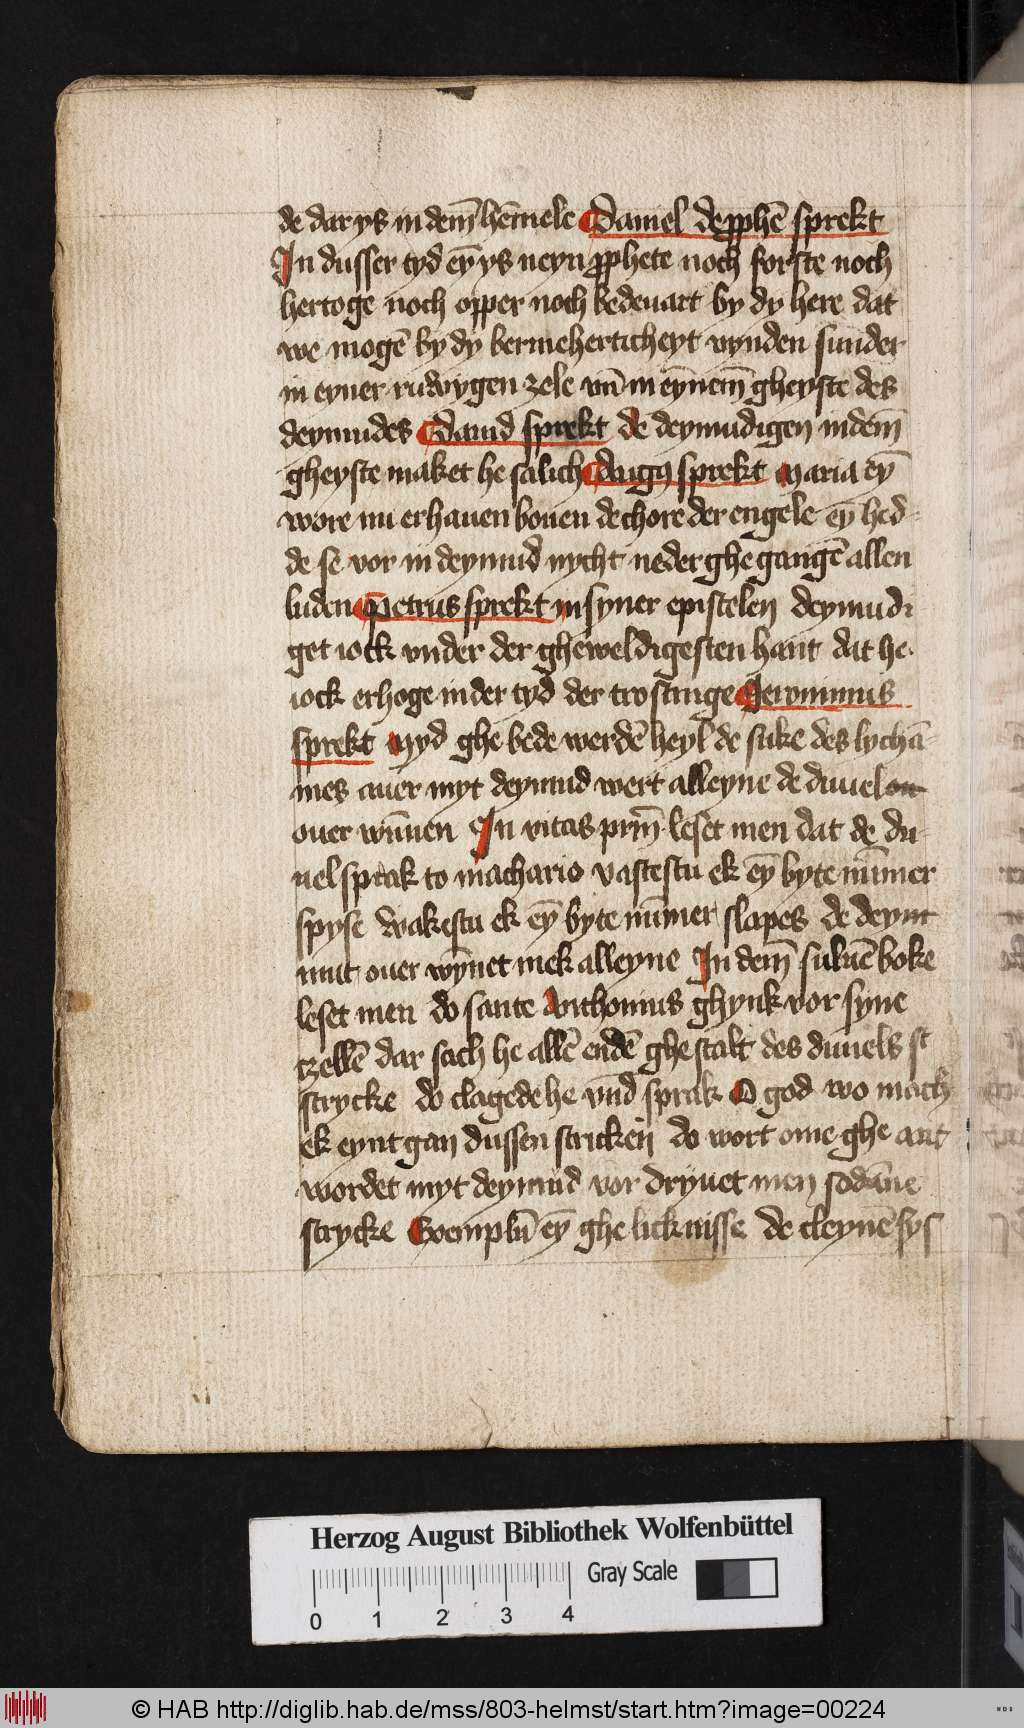 de dar ys in dem̄ hēmele Daniel de ꝓphē sprekt
In dusser tyd eȳ ys neyn ꝓphete noch forste noch
hertoge noch opper noch bedeuart by dy here dat
we mogē by dy bermeherticheyt vynden sunder
in eyner ruwygen zele vn̄ in eȳnem̄ gheyste des
deymudes Dauid sprekt de deymudigen in dem̄
gheyste maket he salich Augꝰ sprekt Maria eȳ
wore nu erhauen bouen de chore der engele eȳ hed-
de se vor in deymud nycht neder ghe gangē allen
luden Petrus sprekt in syner epistelen deymudi
get iock vnder der gheweldigesten hant dat he
iock erhoge in der tyd der trostinge Jeronimus
sprekt Myd ghe bede werdē heyl de suke des lychā-
mes auer myt deymud wert alleyne de duuel
ouer wūnen In vitas prm̄ leset men dat de du-
uel sprak to machario vastestu ek eȳ byte nūmer
spyse wakestu ek eȳ byte nūmer slapes de deym
mut ouer wȳnet mek alleyne In dem̄ suluē boke
leset men do sante Anthonius ghynk vor syne
tzellē dar sach he allē endē ghestalt des duuels st
strycke do clagede he vnd sprak O god wo mach
ek eynt gan dussen stricken do wort ome ghe ant
wordet myt deymud vor dryuet men sodāne
strycke Exemplū eȳ ghe licknisse de cleynē fys
Herzog August Bibliothek Wolfenbüttel
Gray Scale
0 1 2 3 4
© HAB http://diglib.hab.de/mss/803-helmst/start.htm?image=00224